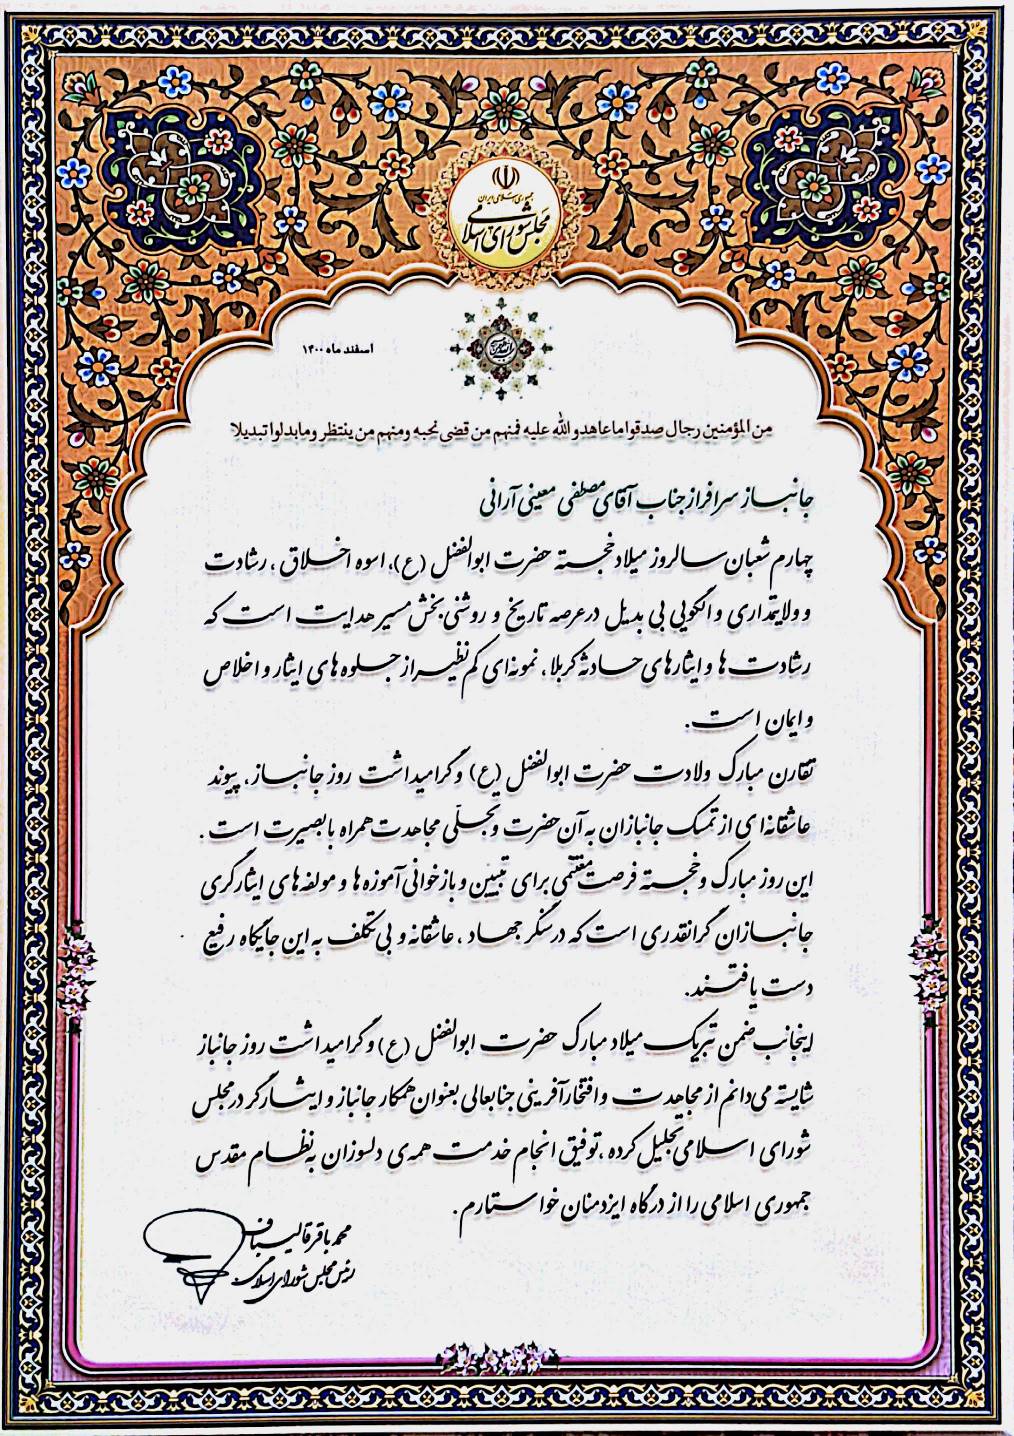 جمهوری اسلامی ایران
مجلس شورای اسلامی
اسفند ماه ۱۴۰۰
من المؤمنین رجال صدقوا ما عاهدو الله علیه فمنهم من قضی نحبه ومنهم من ینتظر وما بدلوا تبدیلا
جانباز سرافراز جناب آقای مصطفی معینی آرانی
چهارم شعبان سالروز میلاد خجسته حضرت ابوالفضل (ع)، اسوه اخلاق ، رشادت
و ولایتمداری و الگویی بی بدیل در عرصه تاریخ و روشنی بخش مسیر هدایت است که
رشادت ها و ایثارهای حادثه کربلا ، نمونه ای کم نظیر از جلوه های ایثار و اخلاص
و ایمان است.
تقارن مبارک ولادت حضرت ابوالفضل (ع) و گرامیداشت روز جانباز، پیوند
عاشقانه ای از تمسک جانبازان به آن حضرت و تجلّی مجاهدت همراه با بصیرت است .
این روز مبارک و خجسته فرصت مغتنمی برای تبیین و بازخوانی آموزه ها و مولفه های ایثارگری
جانبازان گرانقدری است که در سنگر جهاد ، عاشقانه و بی تکلف به این جایگاه رفیع
دست یافتند.
اینجانب ضمن تبریک میلاد مبارک حضرت ابوالفضل (ع) و گرامیداشت روز جانباز
شایسته می دانم از مجاهدت و افتخارآفرینی جنابعالی بعنوان همکار جانباز و ایثارگر در مجلس
شورای اسلامی تجلیل کرده ، توفیق انجام خدمت همه ی دلسوزان به نظام مقدس
جمهوری اسلامی را از درگاه ایزد منان خواستارم .
محمد باقر قالیباف
رئیس مجلس شورای اسلامی